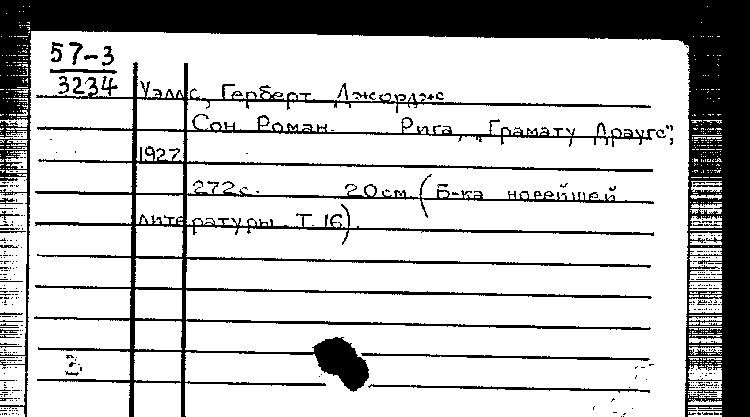 57-3
3234
Уэллс, Герберт Джордж
Сон. Роман. Рига, „Грамату Драугс",
1927.
272с. 20см. (Б-ка новейшей
литературы. Т. 16).